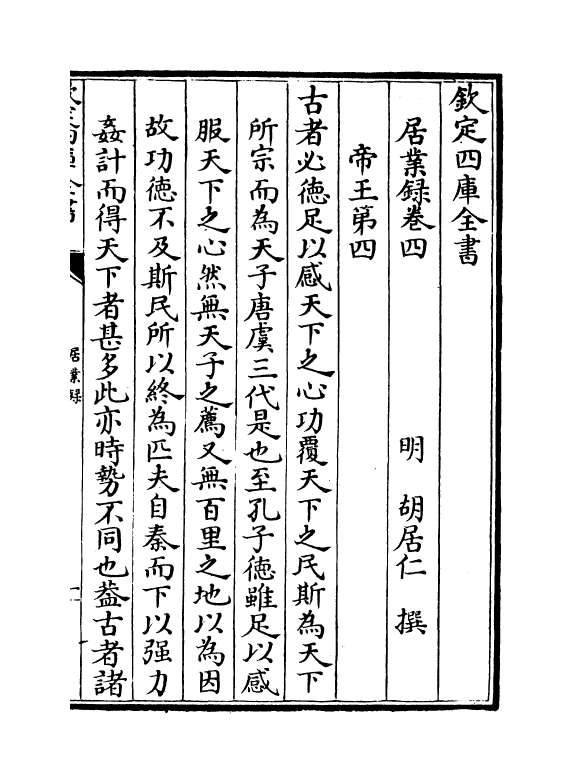 欽定四庫全書
居業録卷四
明　胡居仁　撰
帝王第四
古者必徳足以感天下之心功覆天下之民斯為天下
所宗而為天子唐虞三代是也至孔子徳雖足以感
服天下之心然無天子之薦又無百里之地以為因
故功徳不及斯民所以終為匹夫自秦而下以强力
姦計而得天下者甚多此亦時勢不同也葢古者諸
居業録
一